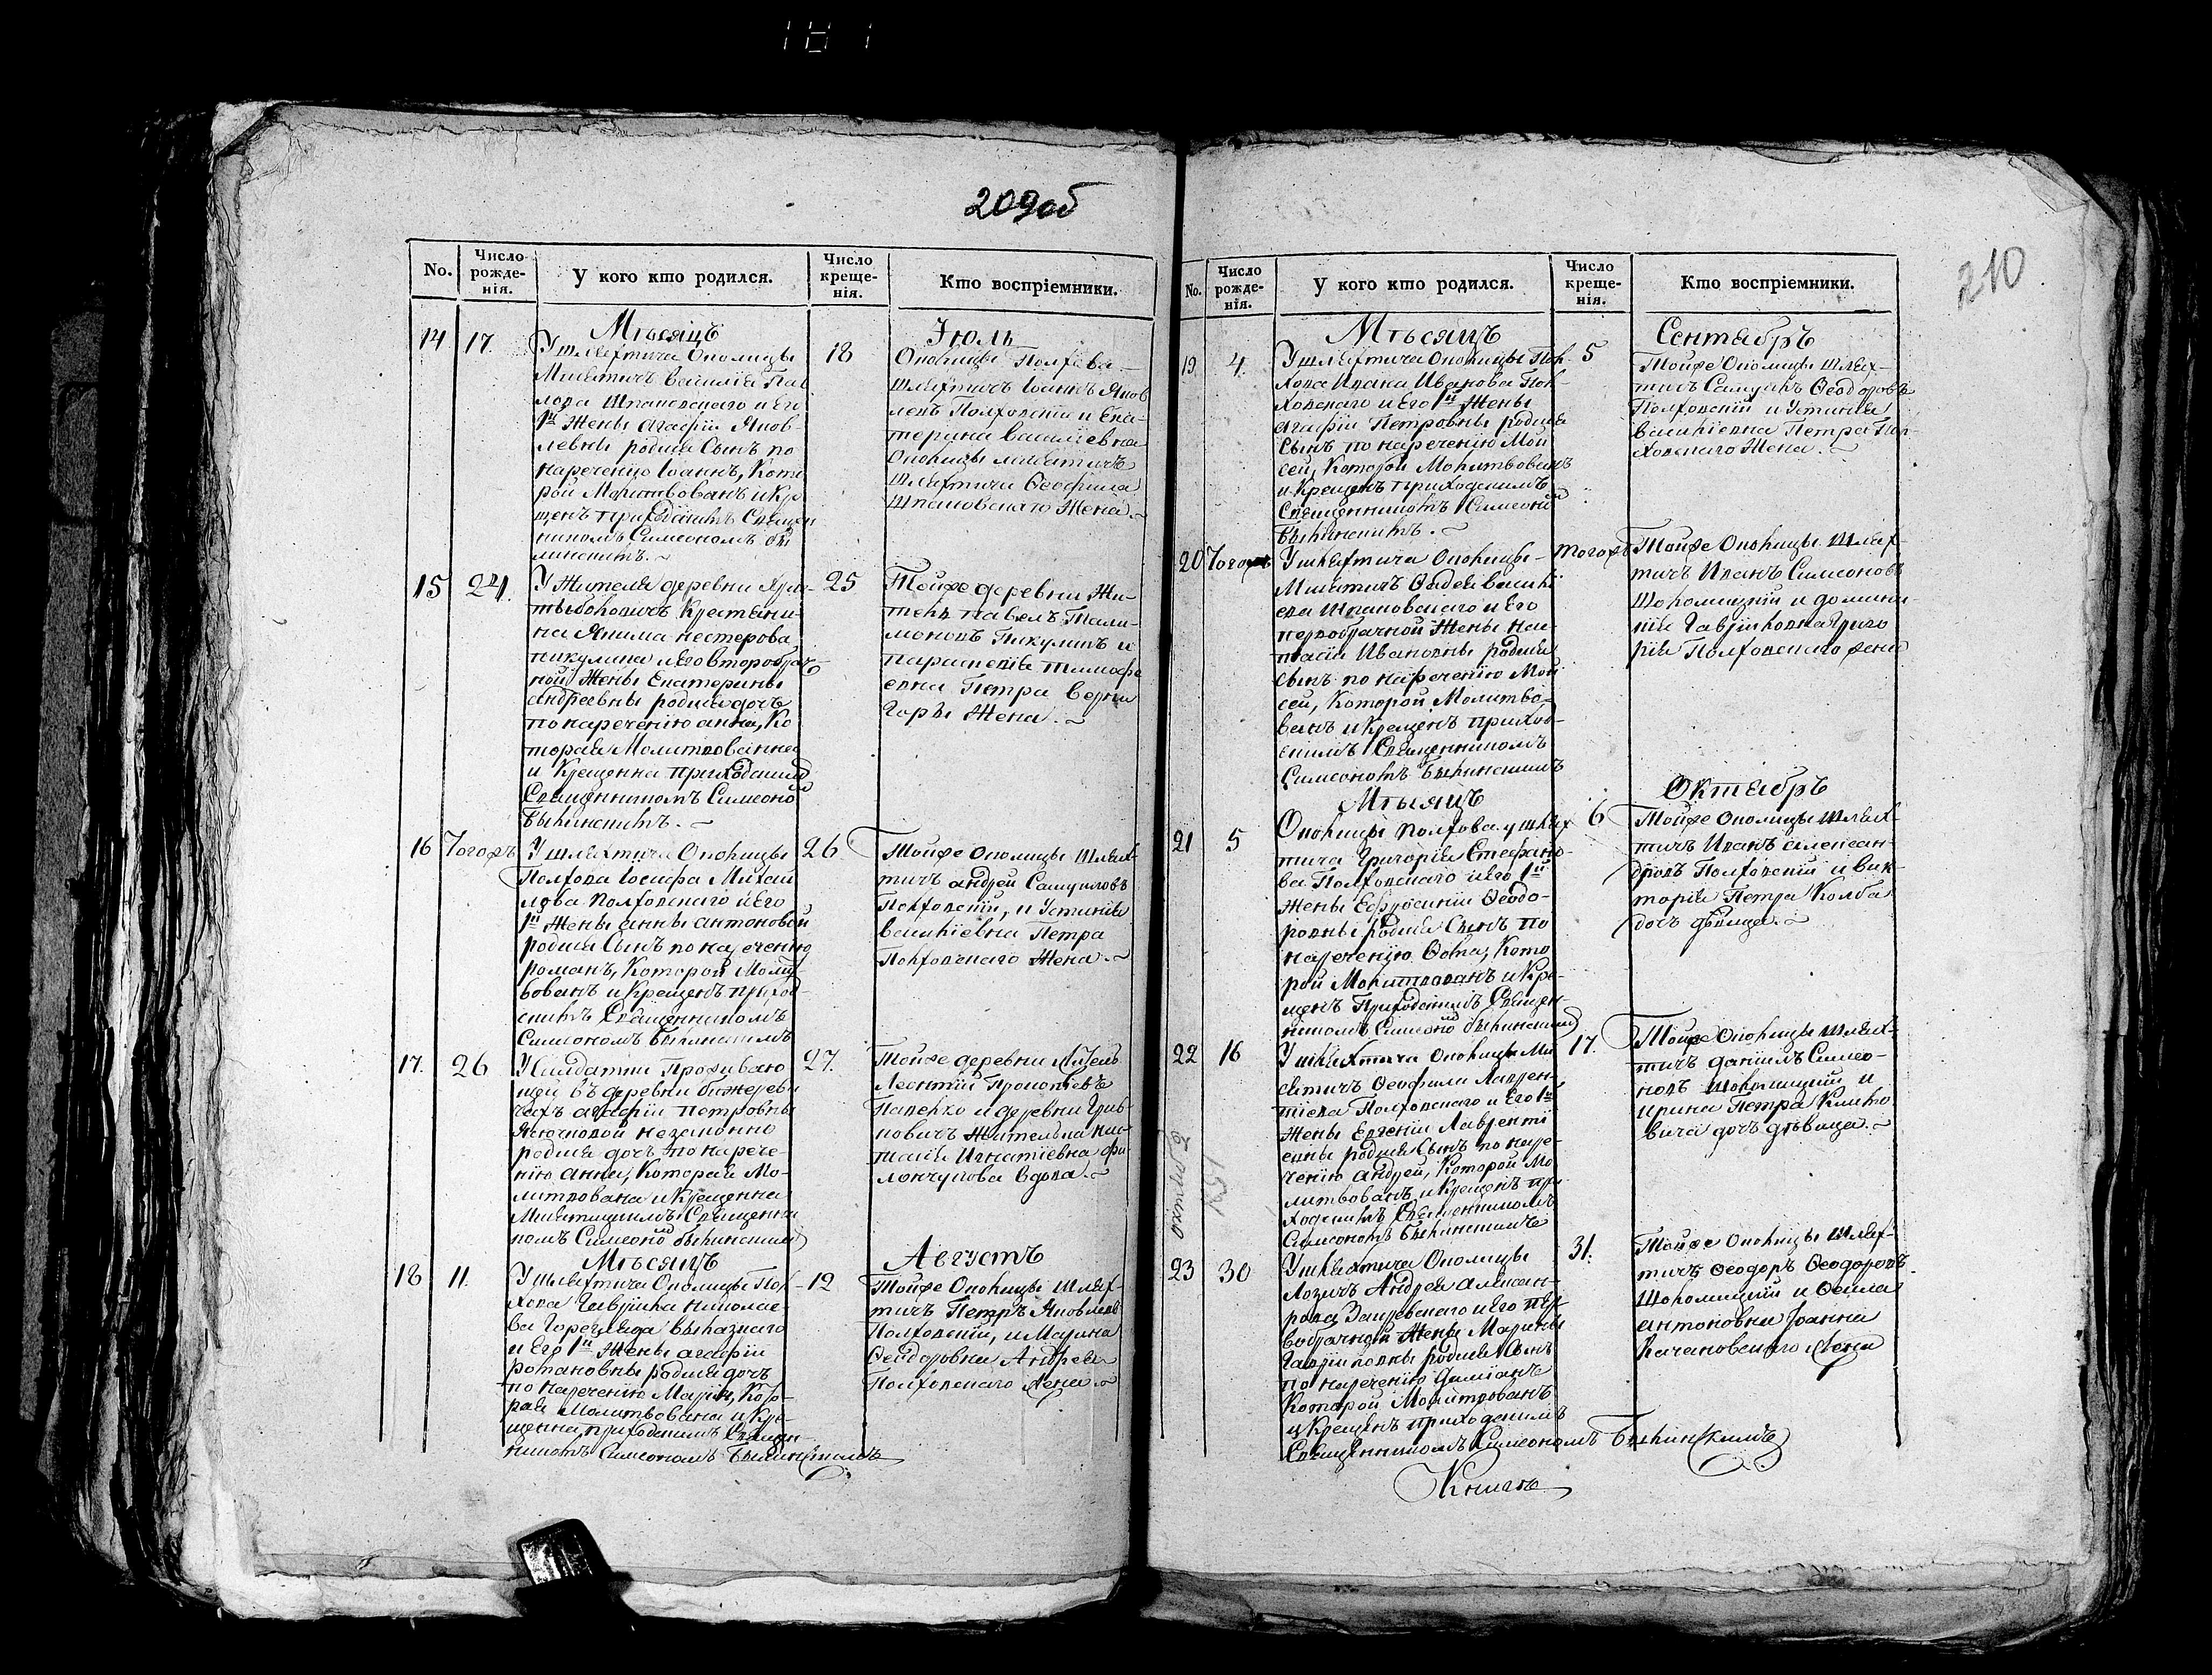 209об
No.
Число рожде-нія.
У кого кто родился.
Число креще-нія.
Кто воспріемники.
Мѣсяцъ
Іюль
14
17.
18
Ушляхтича Околицы
Милятичъ Василія Пав
лова Шпаковскаго и Его
1й Жены Агафіи Яков
левны родился Сынъ по
нареченію Іоаннъ, Кото
рой Молитвованъ и Кре
щенъ приходскимъ Священ
никомъ Симеономъ
Околицы Полхова
Шляхтичъ Іоаннъ Яков
левъ Полховскій и Ека-
терина Василіевна
Околицы Милятичъ
Шляхтича Ѳеофила
Шпаковскаго Жена.
15
24.
25
У Жителя деревни
Крестьяни-
на Якима Нестерова
Пикулика и Его второбрач-
ной Жены Екатерины
Андреевны родилась дочъ
по нареченію Анна, Ко
торая Молитвованна
и Крещенна приходскимъ
Священникомъ Симеоно
Былинскимъ.
Тойже деревни Жи-
тель Павелъ
Пикуликъ и
Параскевія Тимофе
евна Петра
Жена.
16
Тогожъ
26
Ушляхтича Околицы
Полхова Іосифа Михай
лова Полховскаго и Его
1й Жены Анны Антоновой
родился Сынъ по нареченію
Романъ, Которой Молит
вованъ и Крещенъ приход-
скимъ Священникомъ
Симеономъ Былинскимъ
Тойже Околицы Шлях-
тичъ Андрей Самуиловъ
Полховскій, и Устинія
Василіевна Петра
Полховскаго Жена.
17.
26
27.
У Солдатки Прожываю
щей въ деревни
Агафіи Петровны
незаконно
родилась дочъ по нарече-
нію Анна, Которая Мо-
литвована и Крещенна
Милятицкимъ Священни
комъ Симеоно Былинскимъ
Тойже деревни Житель
Леонтій Прокопіевъ
и деревни
Жителька Нас-
тасія Игнатіевна
вдова.
Мѣсяцъ
Августъ
18
11.
12
Ушляхтича Околицы Пол-
хова Гавріила Николае-
ва
и Его 1й Жены Агафіи
Романовны родилась дочъ
по нареченію Марія, Кото-
рая Молитвована и Кре-
щенна приходскимъ Священ
никомъ Симеономъ Былинскимъ
Тойже Околицы Шлях-
тичъ Петръ Яковлевъ
Полховскій, и Марина
Андрея
Полховскаго Жена
210
No.
Число рожде-нія.
У кого кто родился.
Число креще-нія.
Кто воспріемники.
Мѣсяцъ
Сентябръ
19.
4.
5
Ушляхтича Околицы Пол-
хова Ивана Иванова Пол-
ховскаго и Его 1й Жены
Агафіи Петровны родился
Сынъ по нареченію Мой
сей, Которой Молитвованъ
и Крещенъ приходскимъ
Священникомъ Симеоно
Былинскимъ.
Тойже Околицы Шлях-
тичъ Самуилъ Ѳеодоровъ
Полховскій и Устинія
Василіевна Петра Пол
ховскаго Жена.
20
Тогожъ
Тогожъ
Ушляхтича Околицы
Милятичъ Василі
ева Шпаковскаго и Его
первобрачной Жены Нас
тасіи Ивановны родился
Сынъ по нареченію Мой
сей, Которой Молитво-
ванъ и Крещенъ приход-
скимъ Священникомъ
Симеономъ Былинскимъ
Тойже Околицы Шлях-
тичъ Иванъ Симеоновъ
и Домини
Гавріиловна Григо
рія Полховскаго жена
Мѣсяцъ
Октябръ
21
5
6
Околицы Полхова у шлях
тича Григорія Стефано-
ва Полховскаго и Его 1й
Жены Ефросиніи Ѳеодо-
ровны родился Сынъ по
нареченію Ѳома, Кото
рой Молитвованъ и Кре-
щенъ Приходскимъ Священ
никомъ Симеоно Былинскимъ
Тойже Околицы Шлях-
тичъ Иванъ Алексан-
дровъ Полховскій и Вик-
торія Петра Колба
дочъ дѣвица.
22
16
17.
Ушляхтича Околицы Ми
лятичъ Ѳеофила Лаврен-
тіева Полховскаго и Его 1й
Жены Евгеніи Лавренті
евны родился Сынъ по наре-
ченію Андрей, Которой Мо
литвованъ и Крещенъ при
ходскимъ Священникомъ
Симеономъ Былинскимъ
Тойже Околицы Шлях-
тичъ Даніилъ Симео-
новъ и
Ирина Петра Климо
вича дочъ дѣвица.
23
30
31.
Ушляхтича Околицы
Лозичъ Андрея Алексан-
рова и Его пер
вобрачной Жены Марины
Гавріиловны родился Сынъ
по нареченію Даміанъ
Которой Молитвованъ
и Крещенъ приходскимъ
Священникомъ Симеономъ Былинскимъ
Тойже Околицы Шлях-
тичъ Ѳеодоръ Ѳеодоровъ
и
Антоновна Іоанна
Качановскаго Жена